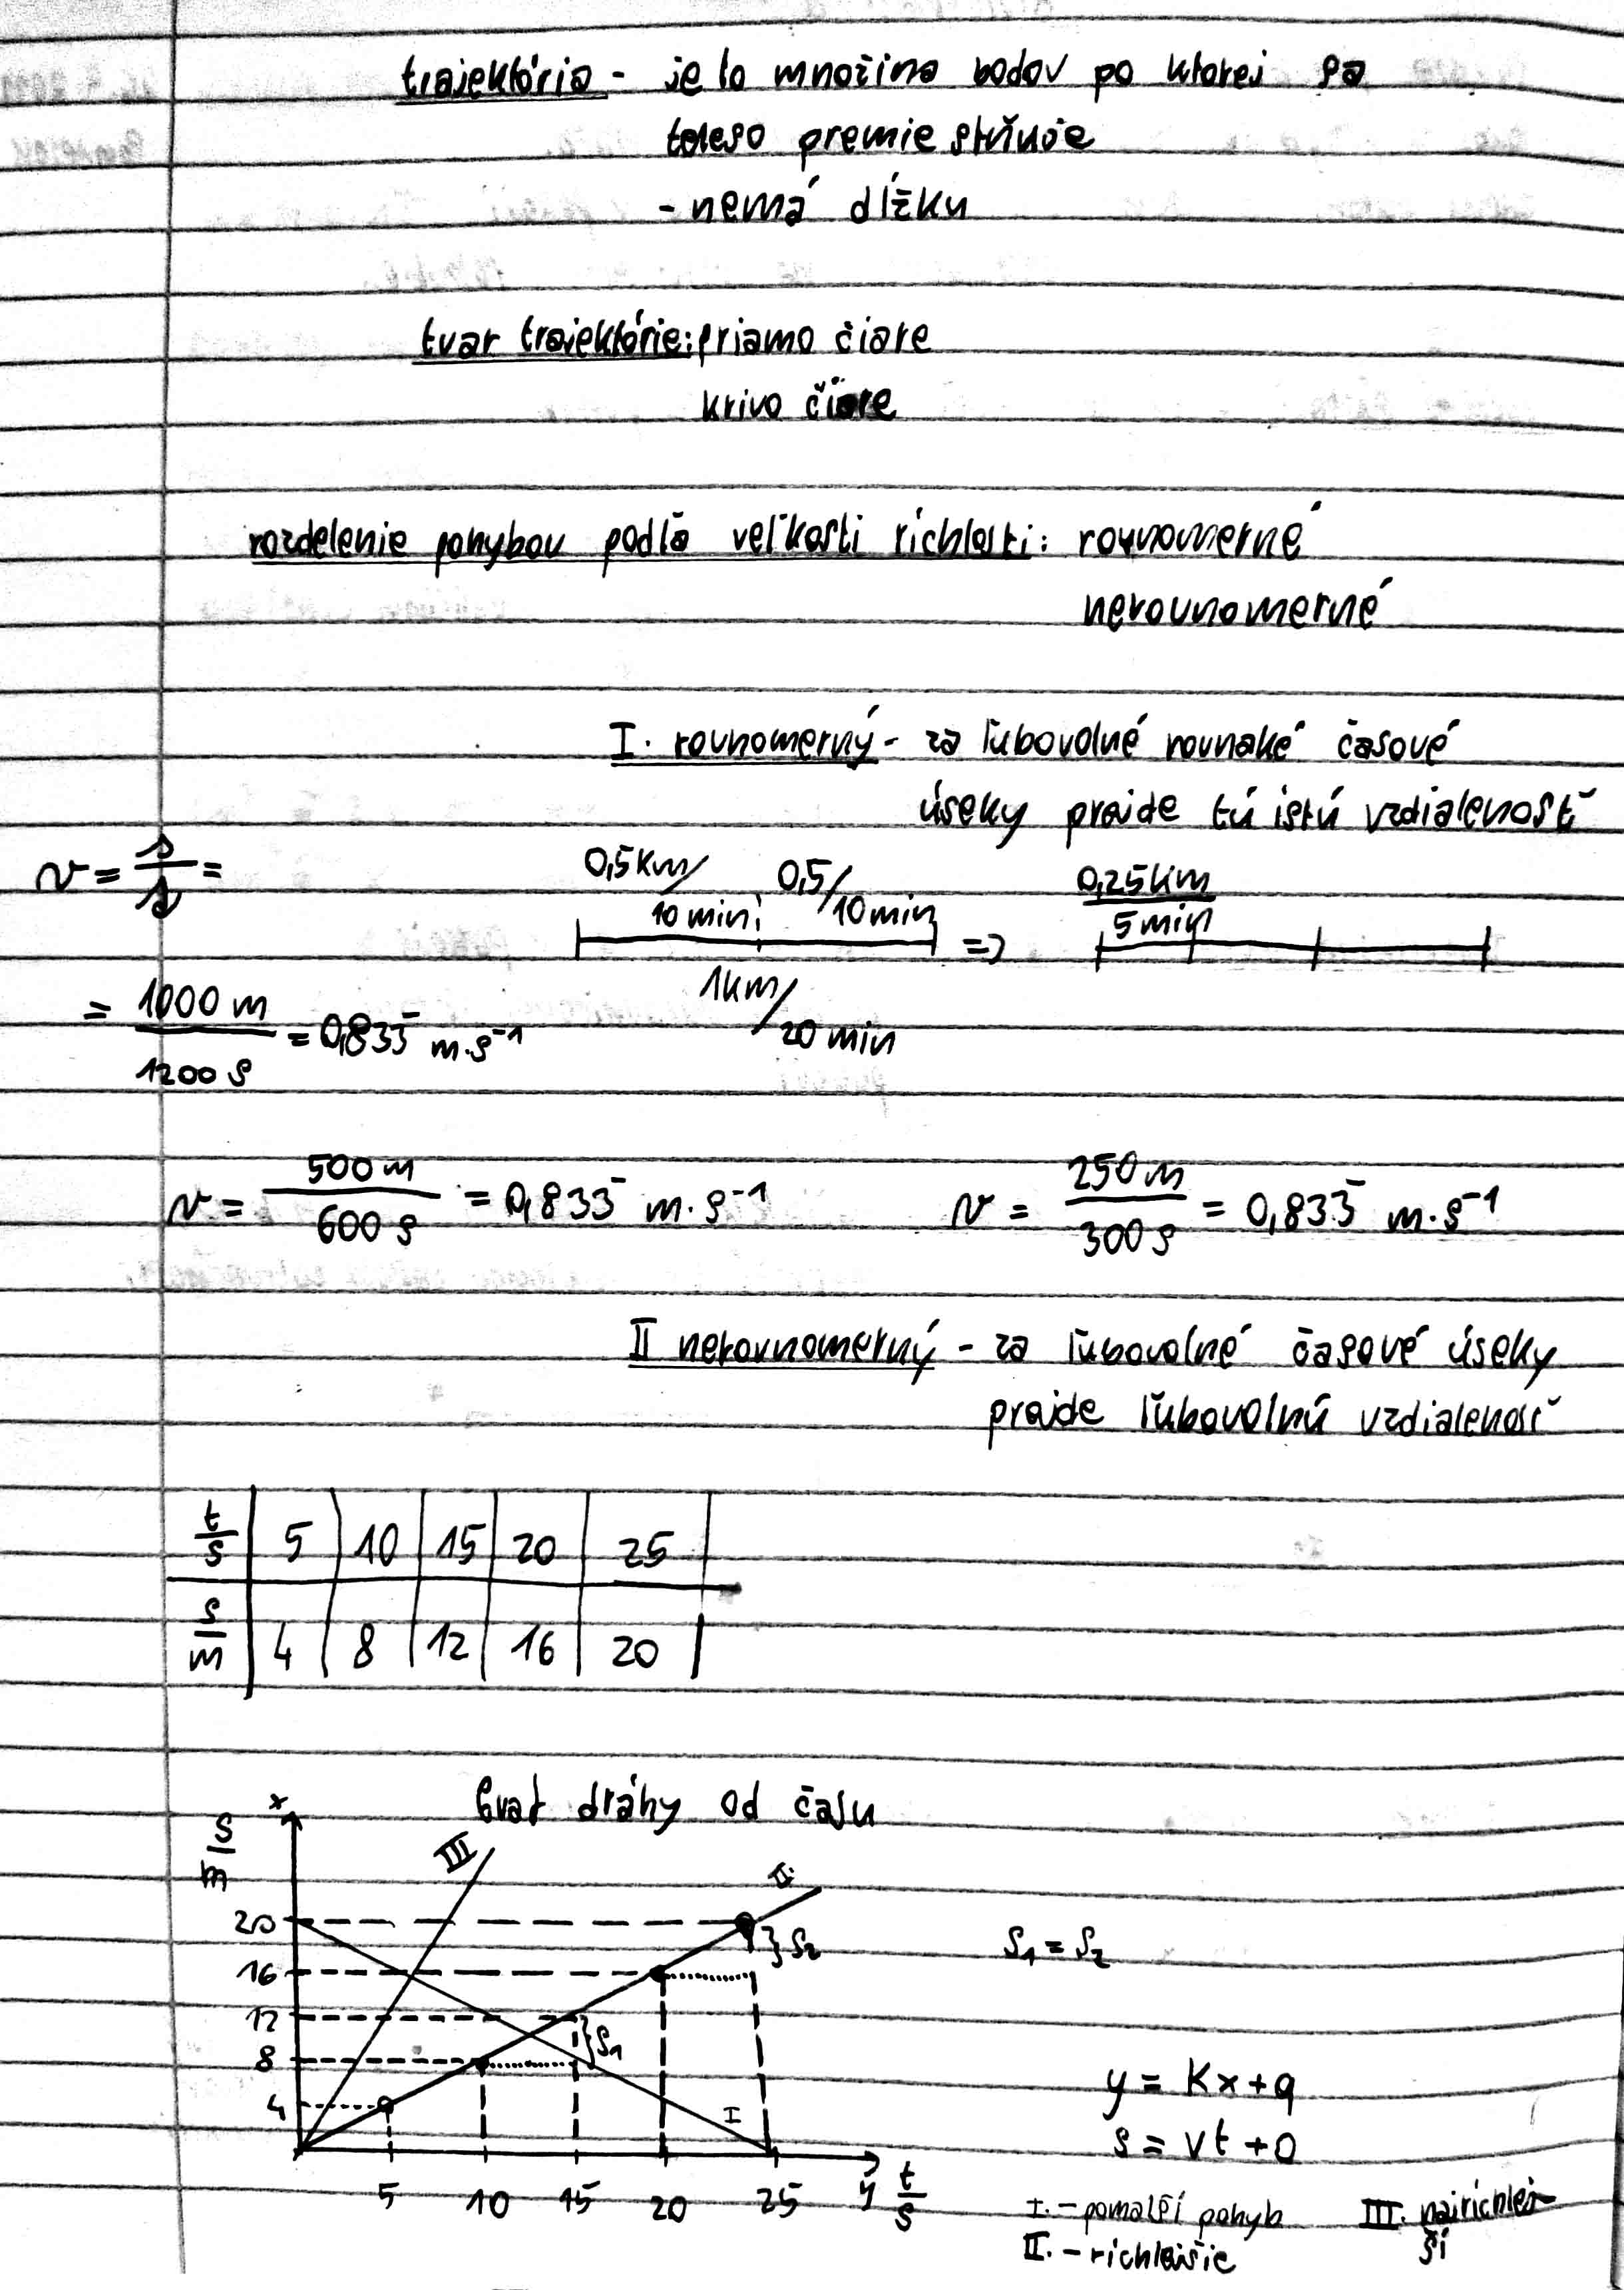 trajektória - je to množina bodov po ktorej sa
teleso premiestňuje
- nemá dĺžku
tvar trajektórie: priamo čiare
krivo čiare
rozdelenie pohybou podlă veľkosti richlosti: rovnomerné
nerovnomerné
I. rovnomerný - za ľubovolné rovnaké časové
úseky prejde tú istú vzdialenosť
v = s/t =
0,5 km/10 min 0,5/10 min => 0,25 km/5 min
1 km/20 min
= 1000 m/1200 s = 0,833̅ m·s⁻¹
v = 500 m/600 s = 0,833̅ m·s⁻¹ v = 250 m/300 s = 0,833̅ m·s⁻¹
II nerovnomerný - za ľubovolné časové úseky
prejde ľubovolnú vzdialenosť
t/s 5 10 15 20 25
s/m 4 8 12 16 20
Graf dráhy od času
x
s/m
III
II.
20
s₂
s₁ = s₂
16
12
s₁
8
4
I
y = Kx + q
s = vt + 0
5 10 15 20 25 y t/s
I. - pomalší pohyb III. najrichlej-
II. - richlejšie ší